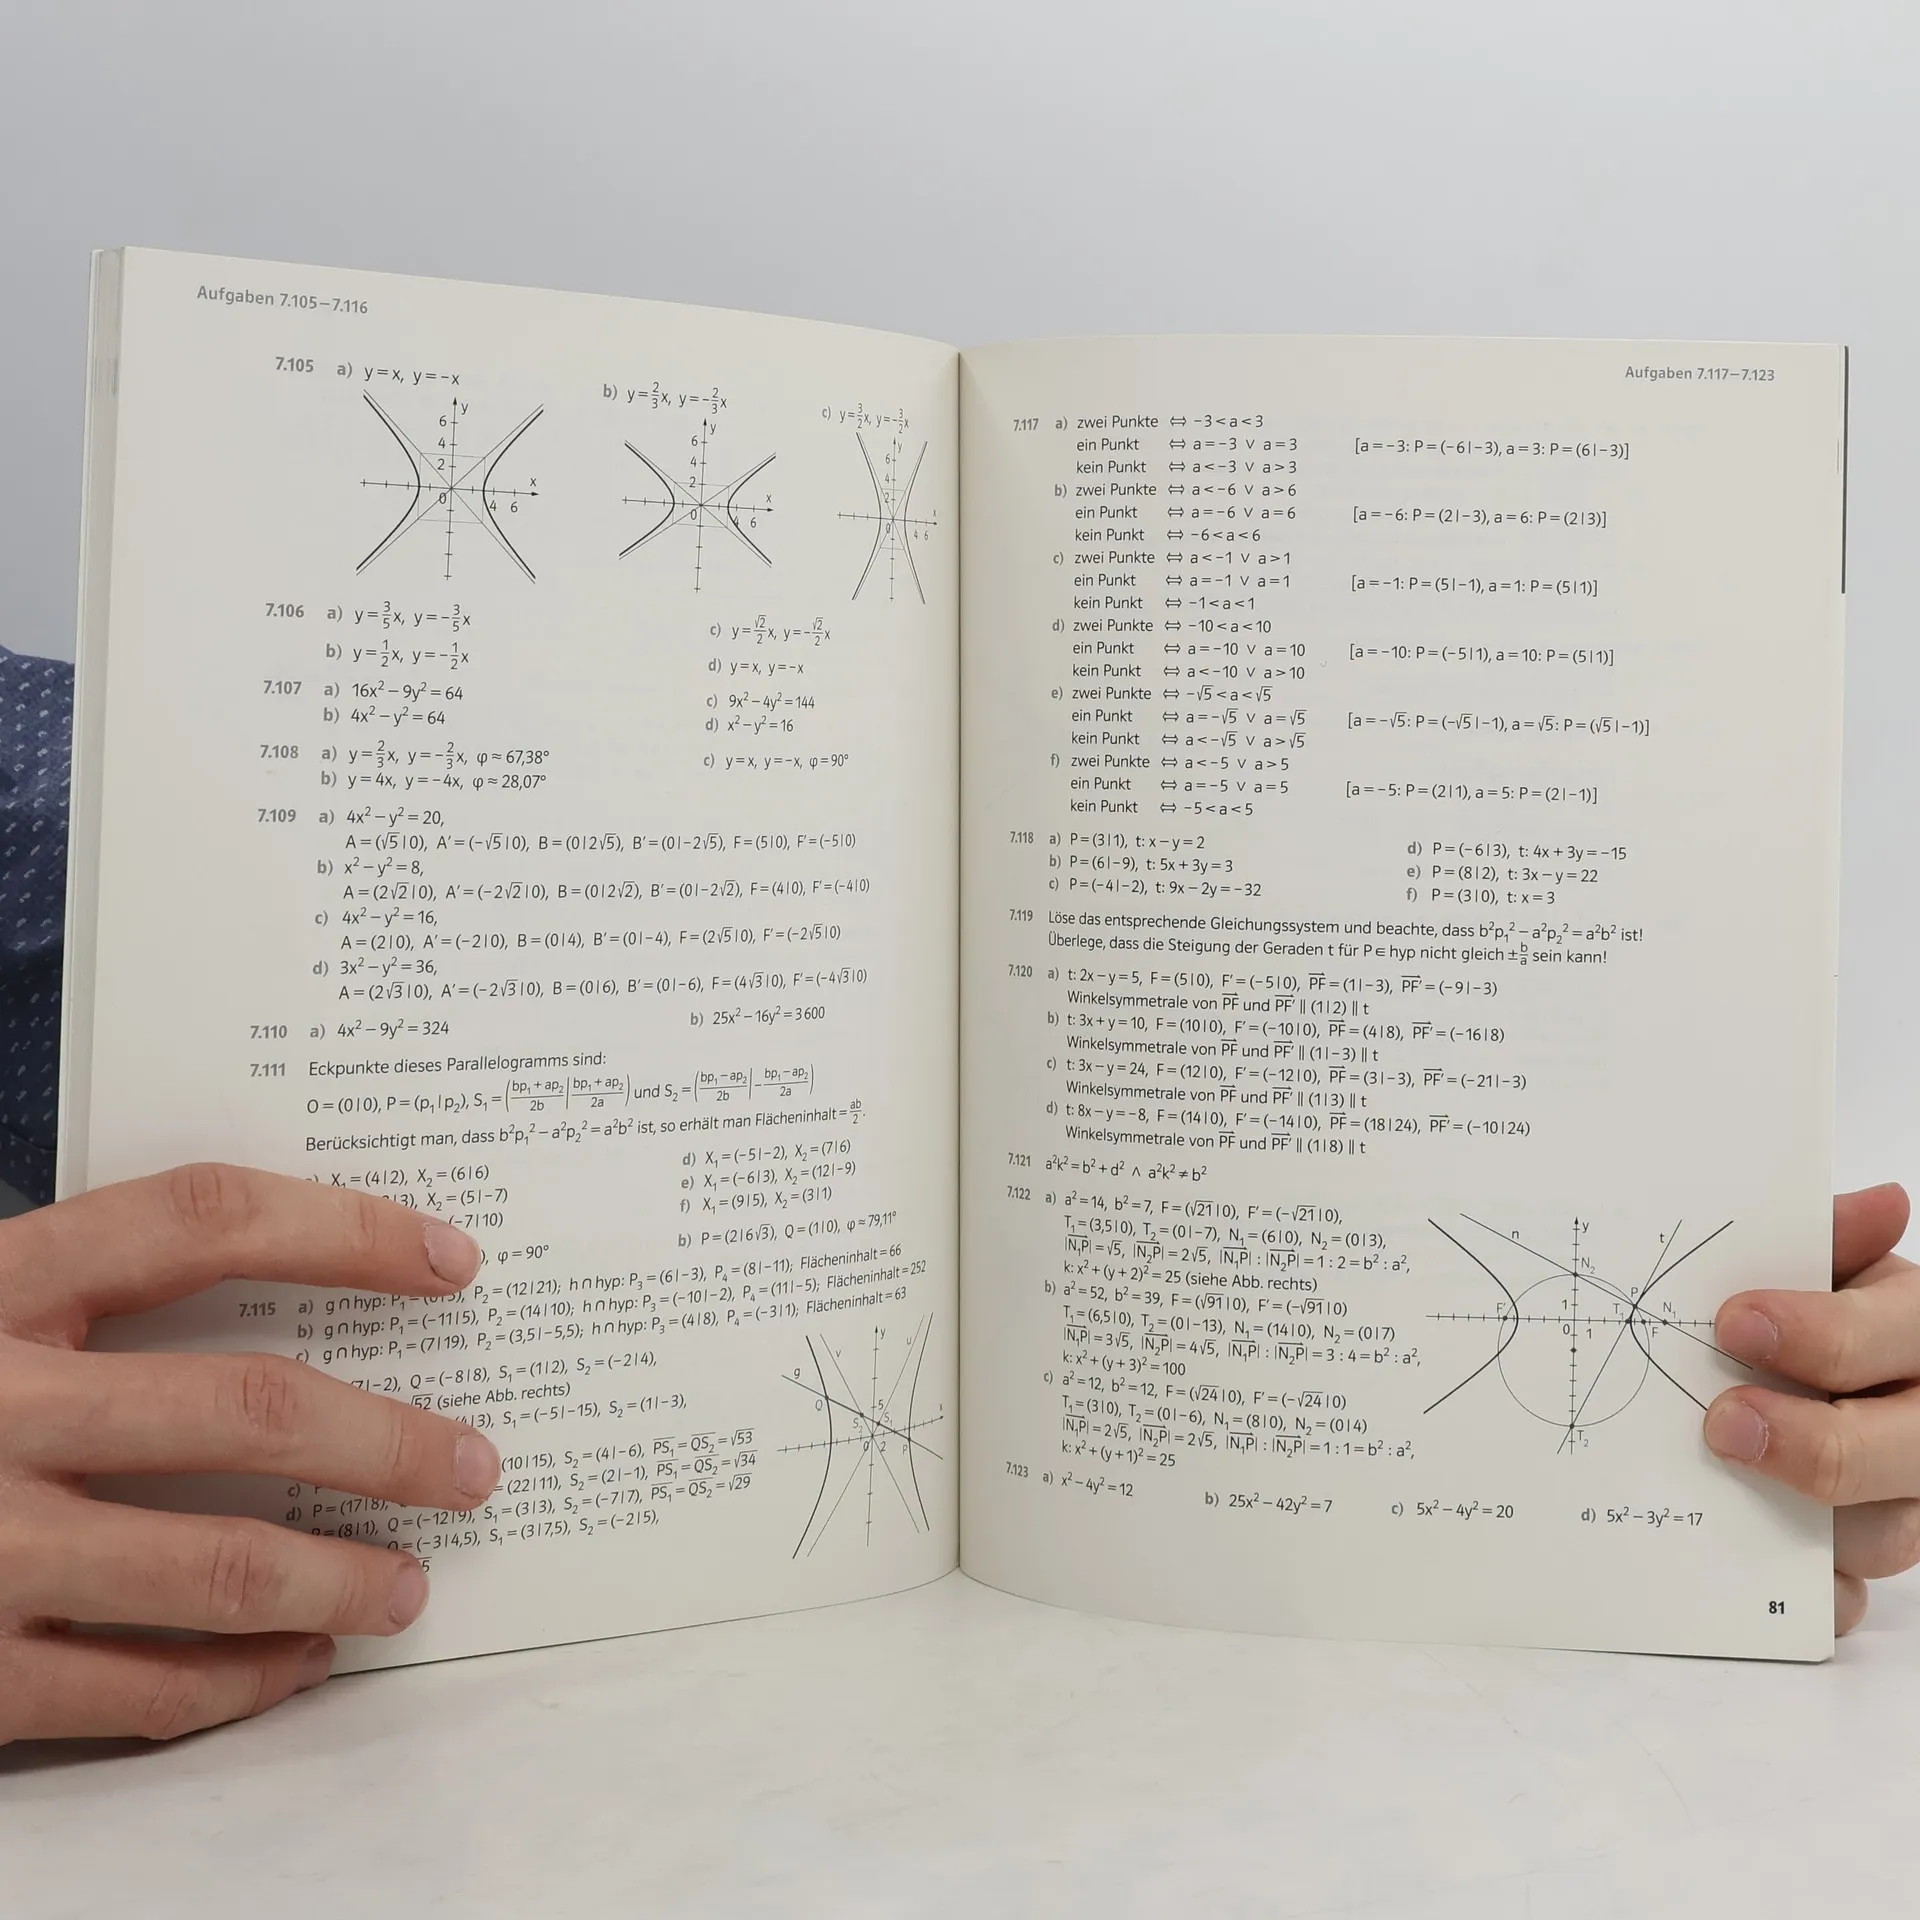 Aufgaben 7.105–7.116
7.105 a) y = x, y = −x
b) y = 2/3 x, y = −2/3 x
c) y = 3/2 x, y = −3/2 x
7.106 a) y = 3/5 x, y = −3/5 x
c) y = √2/2 x, y = −√2/2 x
b) y = 1/2 x, y = −1/2 x
d) y = x, y = −x
7.107 a) 16x² − 9y² = 64
c) 9x² − 4y² = 144
b) 4x² − y² = 64
d) x² − y² = 16
7.108 a) y = 2/3 x, y = −2/3 x, φ ≈ 67,38°
c) y = x, y = −x, φ = 90°
b) y = 4x, y = −4x, φ ≈ 28,07°
7.109 a) 4x² − y² = 20,
A = (√5 | 0), A′ = (−√5 | 0), B = (0 | 2√5), B′ = (0 | −2√5), F = (5 | 0), F′ = (−5 | 0)
b) x² − y² = 8,
A = (2√2 | 0), A′ = (−2√2 | 0), B = (0 | 2√2), B′ = (0 | −2√2), F = (4 | 0), F′ = (−4 | 0)
c) 4x² − y² = 16,
A = (2 | 0), A′ = (−2 | 0), B = (0 | 4), B′ = (0 | −4), F = (2√5 | 0), F′ = (−2√5 | 0)
d) 3x² − y² = 36,
A = (2√3 | 0), A′ = (−2√3 | 0), B = (0 | 6), B′ = (0 | −6), F = (4√3 | 0), F′ = (−4√3 | 0)
7.110 a) 4x² − 9y² = 324
b) 25x² − 16y² = 3600
7.111 Eckpunkte dieses Parallelogramms sind:
O = (0 | 0), P = (p₁ | p₂), S₁ = ((bp₁ + ap₂)/2b | (bp₁ + ap₂)/2a) und S₂ = ((bp₁ − ap₂)/2b | −(bp₁ − ap₂)/2a)
Berücksichtigt man, dass b²p₁² − a²p₂² = a²b² ist, so erhält man Flächeninhalt = ab/2.
X₁ = (4 | 2), X₂ = (6 | 6)
d) X₁ = (−5 | −2), X₂ = (7 | 6)
| 3), X₂ = (5 | −7)
e) X₁ = (−6 | 3), X₂ = (12 | −9)
(−7 | 10)
f) X₁ = (9 | 5), X₂ = (3 | 1)
), φ = 90°
b) P = (2 | 6√3), Q = (1 | 0), φ ≈ 79,11°
7.115 a) g ∩ hyp: P₁ = P₂ = (12 | 21); h ∩ hyp: P₃ = (6 | −3), P₄ = (8 | −11); Flächeninhalt = 66
b) g ∩ hyp: P₁ = (−11 | 5), P₂ = (14 | 10); h ∩ hyp: P₃ = (−10 | −2), P₄ = (11 | −5); Flächeninhalt = 252
c) g ∩ hyp: P₁ = (7 | 19), P₂ = (3,5 | −5,5); h ∩ hyp: P₃ = (4 | 8), P₄ = (−3 | 1); Flächeninhalt = 63
| −2), Q = (−8 | 8), S₁ = (1 | 2), S₂ = (−2 | 4),
√52 (siehe Abb. rechts)
| 3), S₁ = (−5 | −15), S₂ = (1 | −3),
(10 | 15), S₂ = (4 | −6), PS₁ = QS₂ = √53
c) = (22 | 11), S₂ = (2 | −1), PS₁ = QS₂ = √34
d) P = (17 | 8), S₁ = (3 | 3), S₂ = (−7 | 7), PS₁ = QS₂ = √29
P = (8 | 1), Q = (−12 | 9),
Q = (−3 | 4,5), S₁ = (3 | 7,5), S₂ = (−2 | 5),
Aufgaben 7.117–7.123
7.117 a) zwei Punkte ⇔ −3 < a < 3
ein Punkt ⇔ a = −3 ∨ a = 3 [a = −3: P = (−6 | −3), a = 3: P = (6 | −3)]
kein Punkt ⇔ a < −3 ∨ a > 3
b) zwei Punkte ⇔ a < −6 ∨ a > 6
ein Punkt ⇔ a = −6 ∨ a = 6 [a = −6: P = (2 | −3), a = 6: P = (2 | 3)]
kein Punkt ⇔ −6 < a < 6
c) zwei Punkte ⇔ a < −1 ∨ a > 1
ein Punkt ⇔ a = −1 ∨ a = 1 [a = −1: P = (5 | −1), a = 1: P = (5 | 1)]
kein Punkt ⇔ −1 < a < 1
d) zwei Punkte ⇔ −10 < a < 10
ein Punkt ⇔ a = −10 ∨ a = 10 [a = −10: P = (−5 | 1), a = 10: P = (5 | 1)]
kein Punkt ⇔ a < −10 ∨ a > 10
e) zwei Punkte ⇔ −√5 < a < √5
ein Punkt ⇔ a = −√5 ∨ a = √5 [a = −√5: P = (−√5 | −1), a = √5: P = (√5 | −1)]
kein Punkt ⇔ a < −√5 ∨ a > √5
f) zwei Punkte ⇔ a < −5 ∨ a > 5
ein Punkt ⇔ a = −5 ∨ a = 5 [a = −5: P = (2 | 1), a = 5: P = (2 | −1)]
kein Punkt ⇔ −5 < a < 5
7.118 a) P = (3 | 1), t: x − y = 2
d) P = (−6 | 3), t: 4x + 3y = −15
b) P = (6 | −9), t: 5x + 3y = 3
e) P = (8 | 2), t: 3x − y = 22
c) P = (−4 | −2), t: 9x − 2y = −32
f) P = (3 | 0), t: x = 3
7.119 Löse das entsprechende Gleichungssystem und beachte, dass b²p₁² − a²p₂² = a²b² ist!
Überlege, dass die Steigung der Geraden t für P ∈ hyp nicht gleich ± b/a sein kann!
7.120 a) t: 2x − y = 5, F = (5 | 0), F′ = (−5 | 0), PF = (1 | −3), PF′ = (−9 | −3)
Winkelsymmetrale von PF und PF′ ∥ (1 | 2) ∥ t
b) t: 3x + y = 10, F = (10 | 0), F′ = (−10 | 0), PF = (4 | 8), PF′ = (−16 | 8)
Winkelsymmetrale von PF und PF′ ∥ (1 | −3) ∥ t
c) t: 3x − y = 24, F = (12 | 0), F′ = (−12 | 0), PF = (3 | −3), PF′ = (−21 | −3)
Winkelsymmetrale von PF und PF′ ∥ (1 | 3) ∥ t
d) t: 8x − y = −8, F = (14 | 0), F′ = (−14 | 0), PF = (18 | 24), PF′ = (−10 | 24)
Winkelsymmetrale von PF und PF′ ∥ (1 | 8) ∥ t
7.121 a²k² = b² + d² ∧ a²k² ≠ b²
7.122 a) a² = 14, b² = 7, F = (√21 | 0), F′ = (−√21 | 0),
T₁ = (3,5 | 0), T₂ = (0 | −7), N₁ = (6 | 0), N₂ = (0 | 3),
|N₁P| = √5, |N₂P| = 2√5, |N₁P| : |N₂P| = 1 : 2 = b² : a²,
k: x² + (y + 2)² = 25 (siehe Abb. rechts)
b) a² = 52, b² = 39, F = (√91 | 0), F′ = (−√91 | 0)
T₁ = (6,5 | 0), T₂ = (0 | −13), N₁ = (14 | 0), N₂ = (0 | 7)
|N₁P| = 3√5, |N₂P| = 4√5, |N₁P| : |N₂P| = 3 : 4 = b² : a²,
k: x² + (y + 3)² = 100
c) a² = 12, b² = 12, F = (√24 | 0), F′ = (−√24 | 0)
T₁ = (3 | 0), T₂ = (0 | −6), N₁ = (8 | 0), N₂ = (0 | 4)
|N₁P| = 2√5, |N₂P| = 2√5, |N₁P| : |N₂P| = 1 : 1 = b² : a²,
k: x² + (y + 1)² = 25
7.123 a) x² − 4y² = 12
b) 25x² − 42y² = 7
c) 5x² − 4y² = 20
d) 5x² − 3y² = 17
81